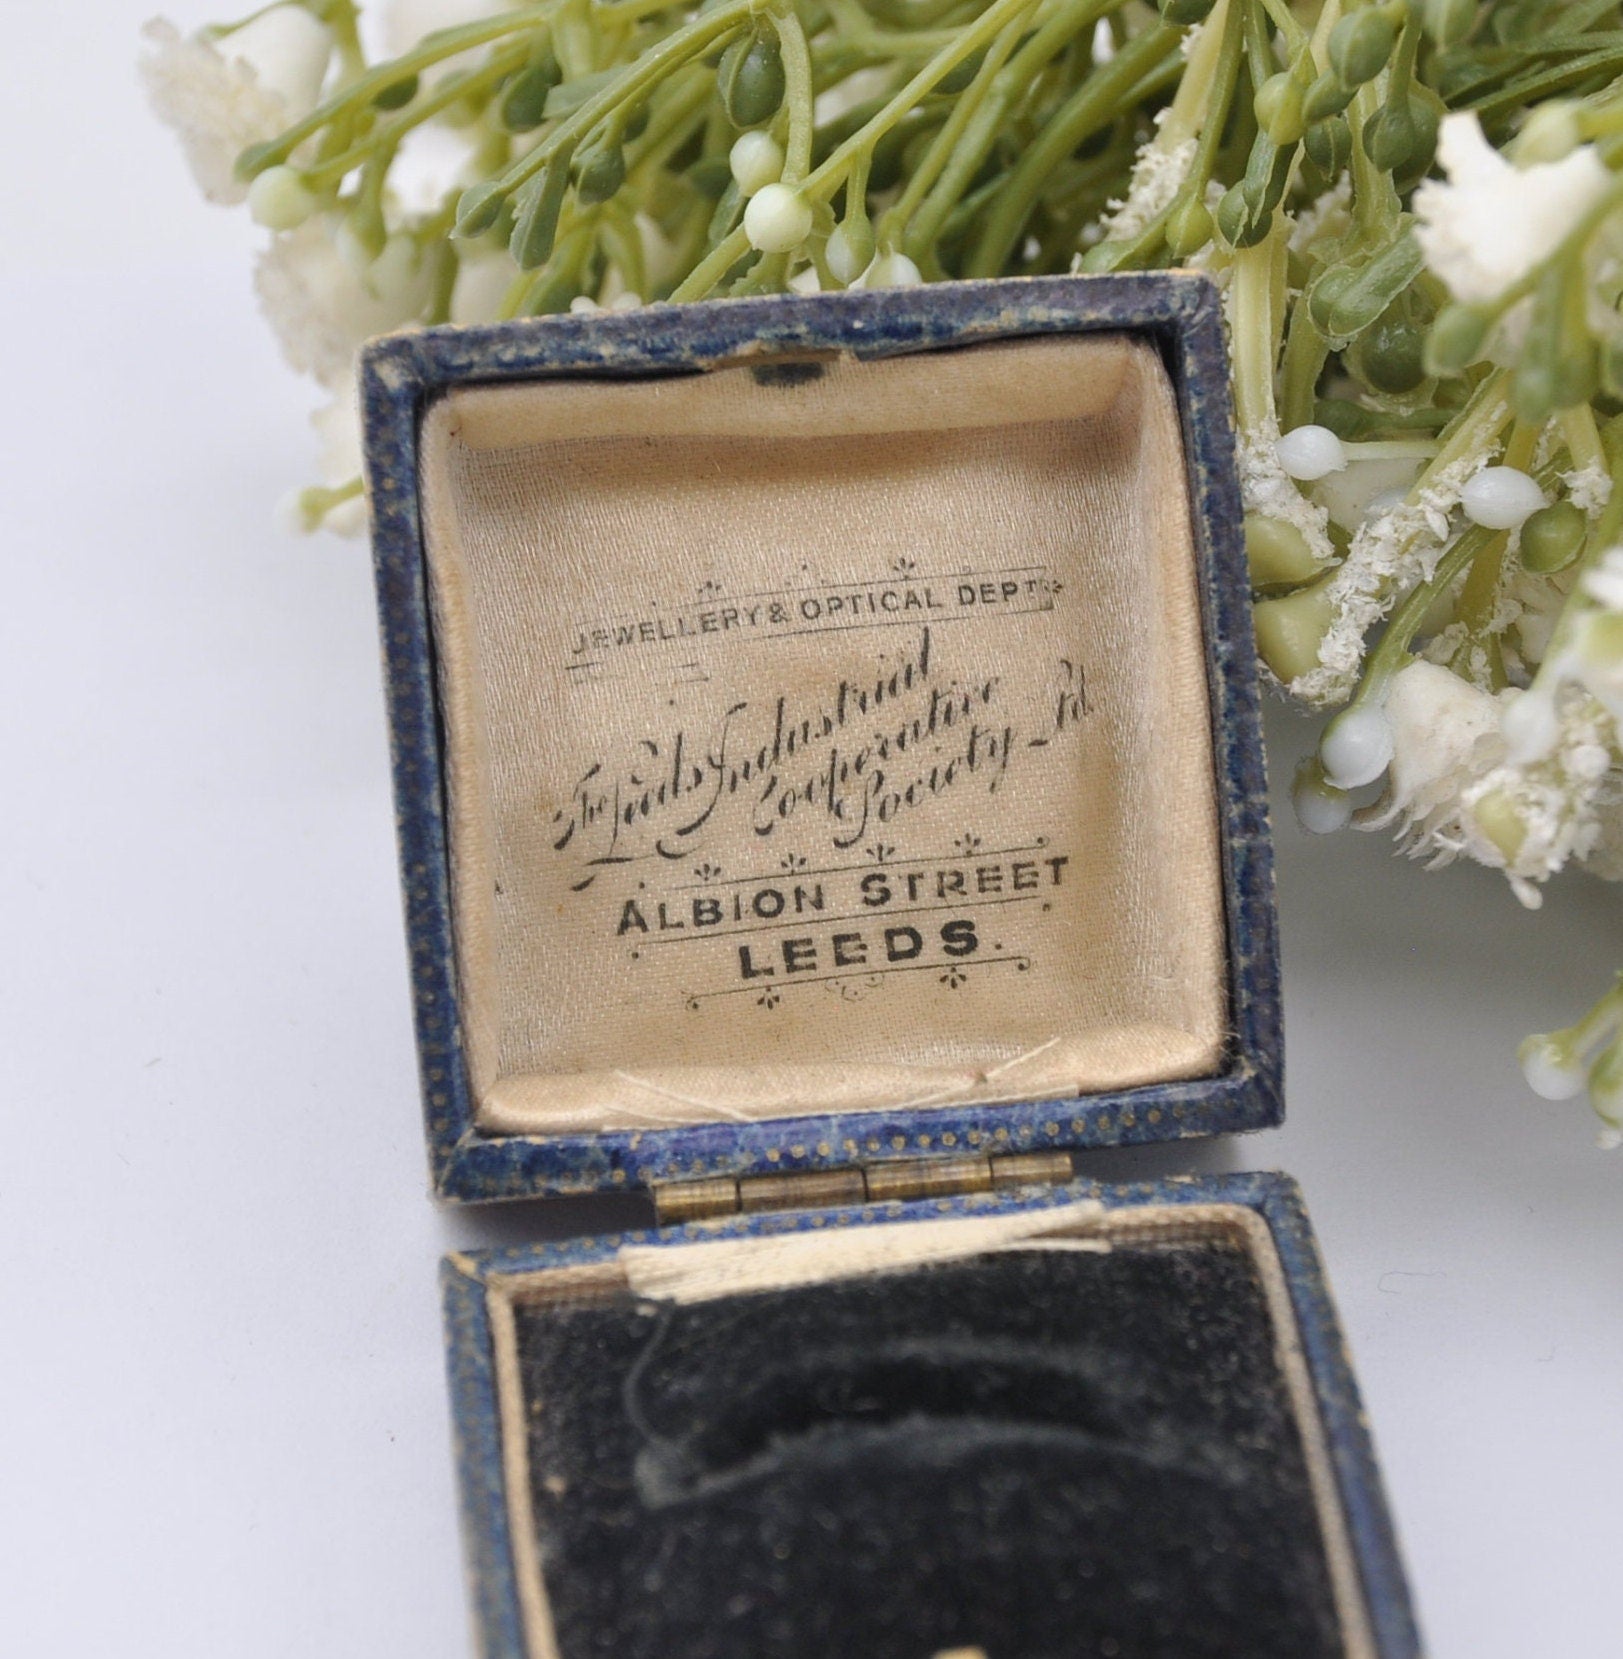 JEWELLERY & OPTICAL DEPT.
The Leeds Industrial
Cooperative
Society Ltd.
ALBION STREET
LEEDS.